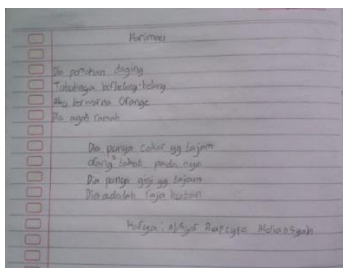 Harimau
Dia pemakan daging
Tubuhnya berbelang-belang
Aku berwarna Orange
Dia agak ramah
Dia punya cakar yg tajam
Orang² takut pada nya
Dia punya gigi yg tajam
Dia adalah raja hutan
Karya :